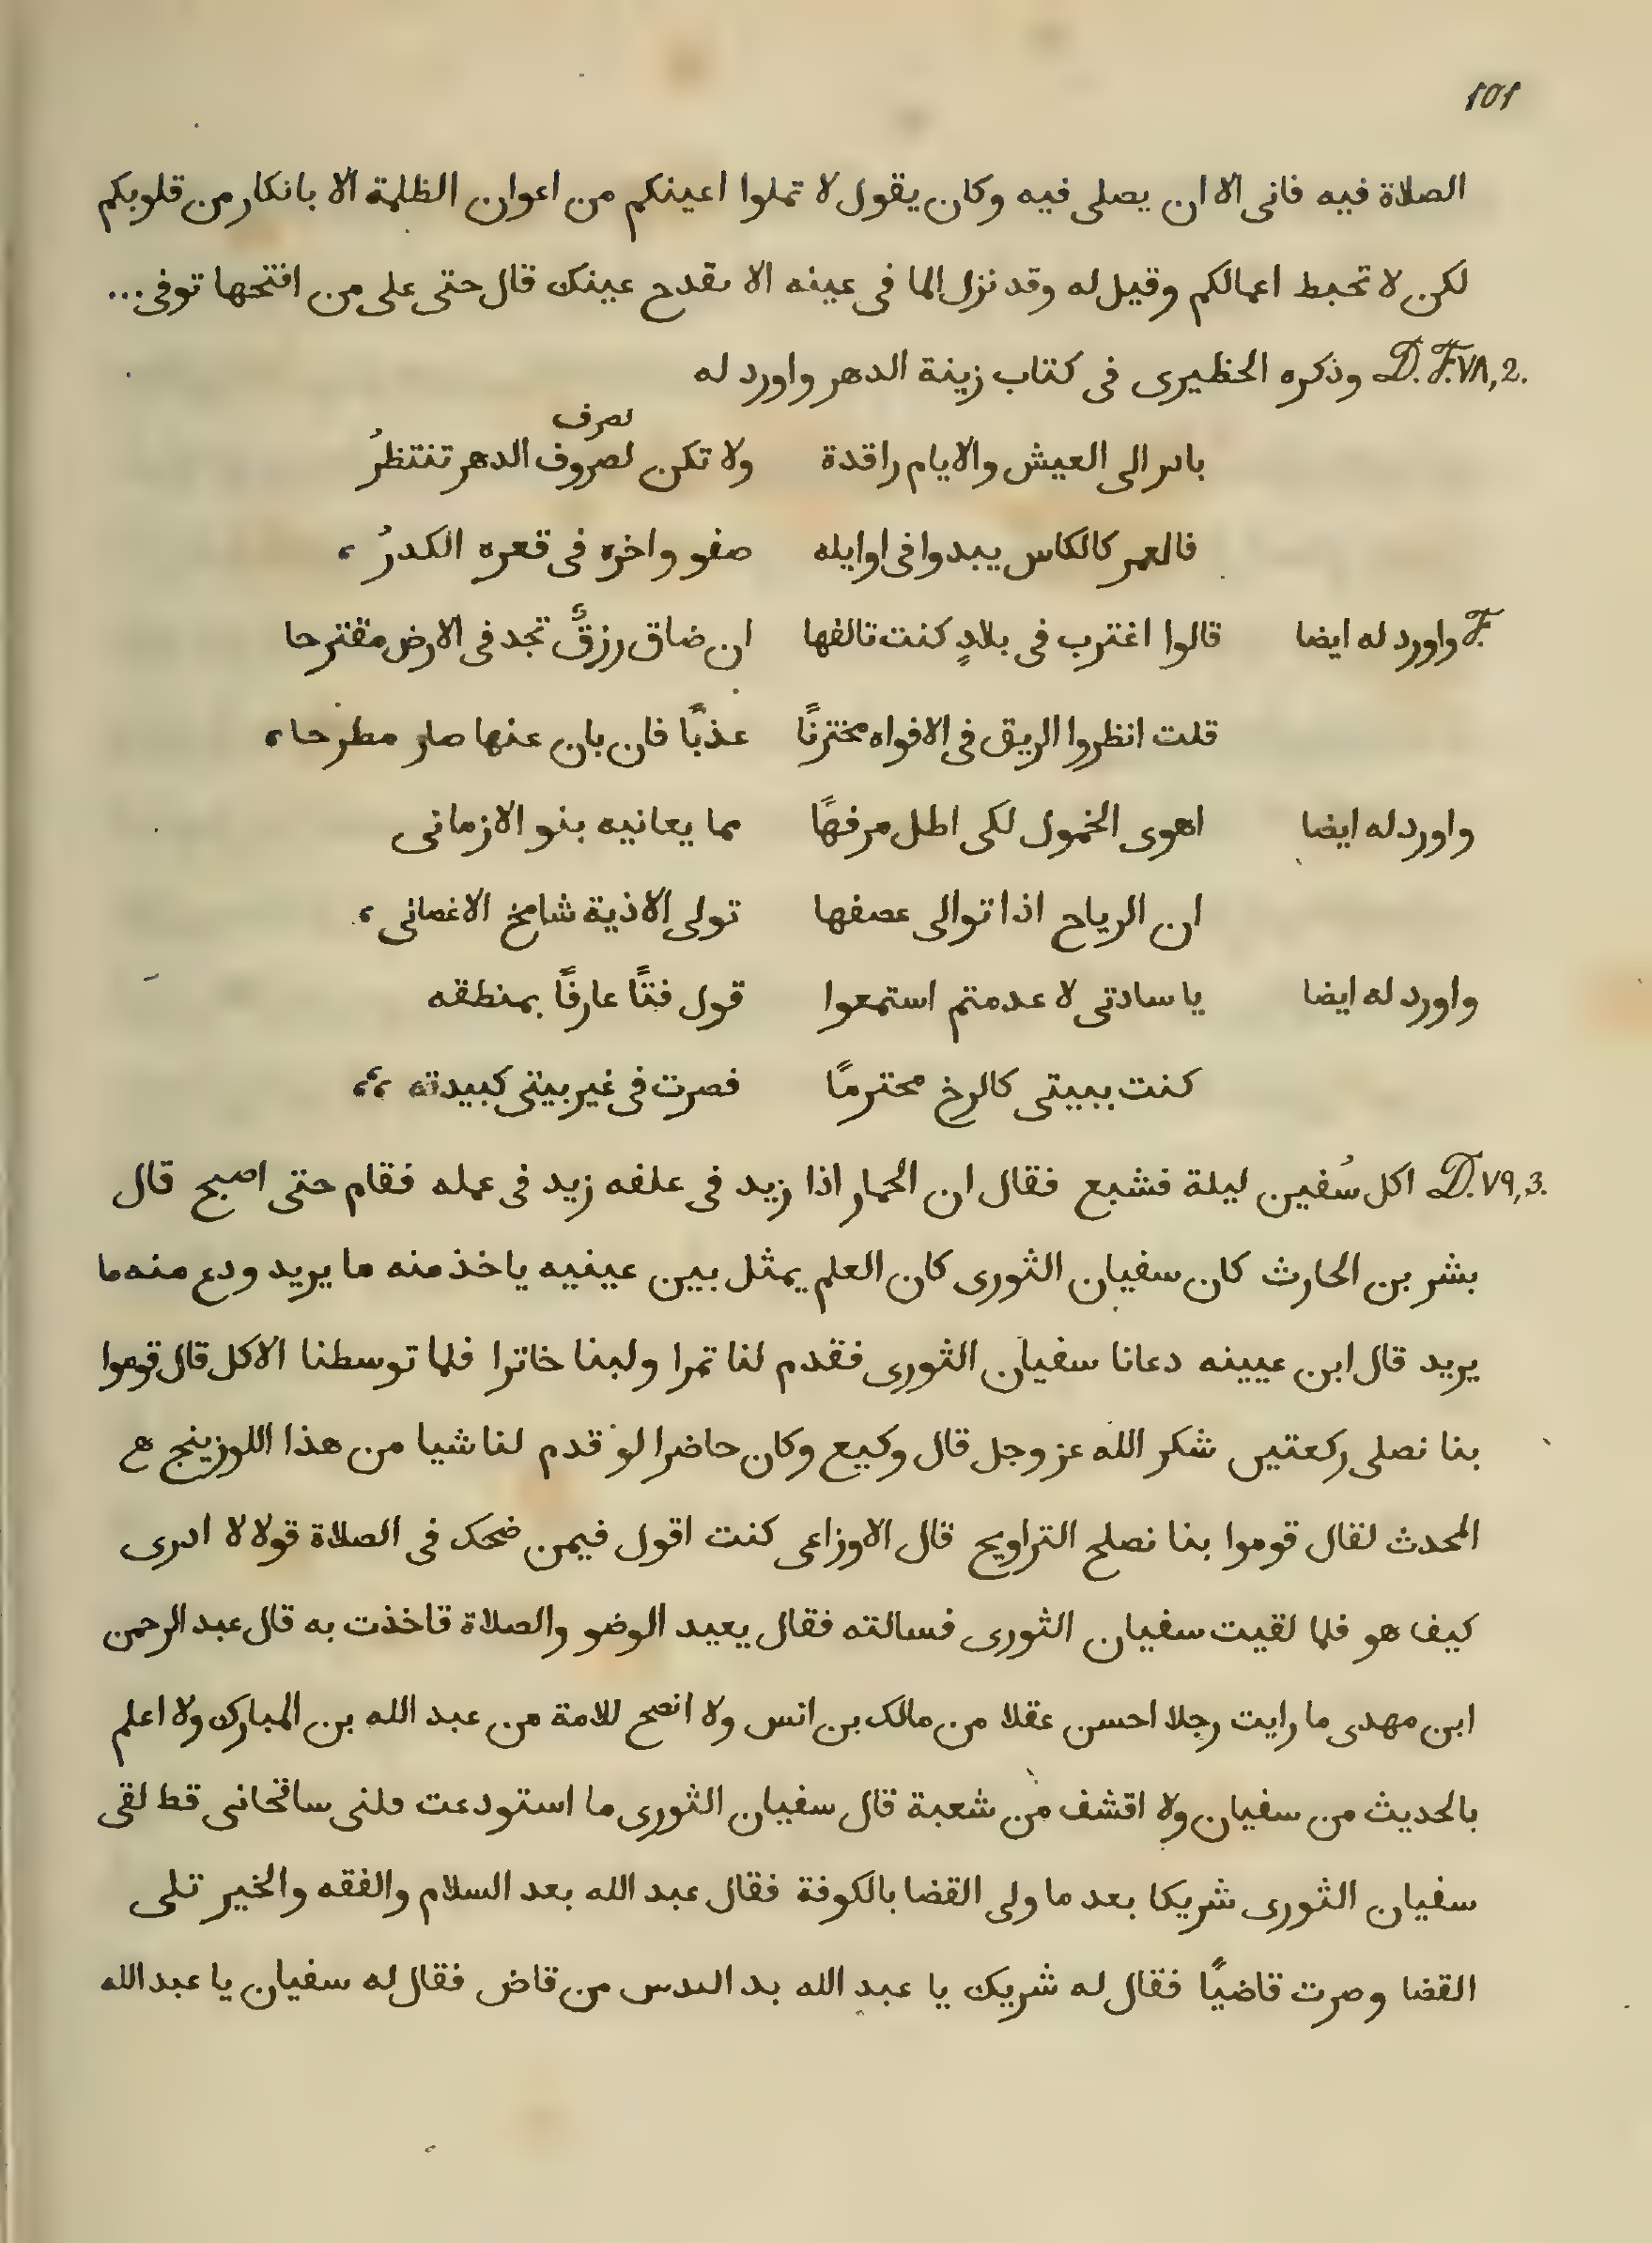 101
الصلاة فيه فانى الا ان يصلى فيه وكان يقول لا تملوا اعينكم من اعوان الظلمة الا بانكار من قلوبكم
لكن لا تحبط اعمالكم وقيل له وقد نزل الما فى عينه الا ىقدح عينك قال حتى على من افتحها توفى...
D. F. ٧٨, 2. وذكره الحظيرى فى كتاب زينة الدهر واورد له
لصرف
بادر الى العيش والايام راقدة ولا تكن لصروف الدهر تنتظرُ
فالعمر كالكاس يبدوا فى اوايله صفو واخره فى قعره الكدرُ ،
F. واورد له ايضا قالوا اغترب فى بلادٍ كنت تالفها ان ضاق رزقٌ تجد فى الارض مقترحا
قلت انظروا الريق فى الافواه مختزنًا عذبًا فان بان عنها صار مطرحا ،
واورد له ايضا اهوى الخمول لكى اظل مرفهًا مما يعانيه بنو الازمانى
ان الرياح اذا توالى عصفها تولى الاذية شامخ الاغصانى ،
واورد له ايضا يا سادتى لا عدمتم استمعوا قول فتًا عارفًا بمنطقه
كنت ببيتى كالرخ محترمًا فصرت فى غير بيتى كبيدته ،،
D. ٧٩, 3. اكل سُفين ليلة فشبع فقال ان الحمار اذا زيد فى علفه زيد فى عمله فقام حتى اصبح قال
بشر بن الحارث كان سفيان الثورى كان العلم يمثل بين عينيه ياخذ منه ما يريد ودع منه ما
يريد قال ابن عيينه دعانا سفيان الثورى فقدم لنا تمرا ولبنا خاترا فلما توسطنا الاكل قال قوموا
بنا نصلى ركعتيں شكر الله عز وجل قال وكيع وكان حاضرا لو قدم لنا شيا من هذا اللوزينج هع
المحدث لقال قوموا بنا نصلح التراويح قال الاوزاعى كنت اقول فيمن ضحك فى الصلاة قولا لا ادرى
كيف هو فلما لقيت سفيان الثورى فسالته فقال يعيد الوضو والصلاة قاخذت به قال عبد الرحمن
ابن مهدى ما رايت رجلا احسن عقلا من مالك بن انس ولا انصح للامة من عبد الله بن المبارك ولا اعلم
بالحديث من سفيان ولا اقشف من شعبة قال سفيان الثورى ما استودعت ڡلنى ساڡحانى قط لقى
سفيان الثورى شريكا بعد ما ولى القضا بالكوفة فقال عبد الله بعد السلام والفقه والخير تلى
القضا وصرت قاضيًا فقال له شريك يا عبد الله بد من قاض فقال له سفيان يا عبد الله